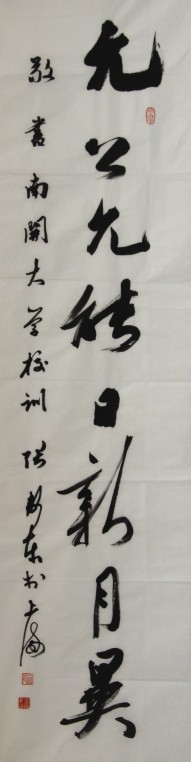 允公允能日新月異
敬書南開大學校訓 張東於上海